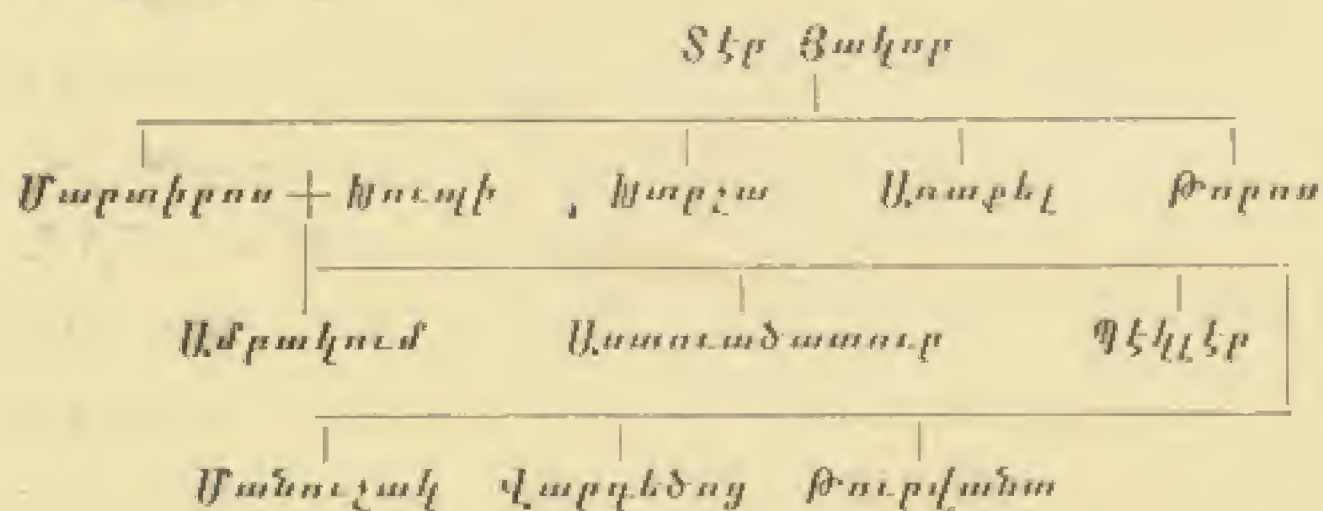 Տէր Յակոբ
Մարտիրոս Խուպի Խարշա Առաքել Թորոս
Ամբակում Աստուածատուր Պէկլէր
Մանուշակ Վարդեծոց Թուրվանտա